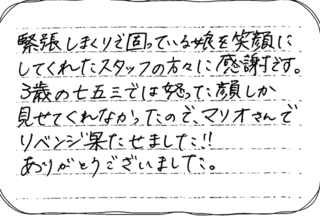 緊張しまくりで固っている娘を笑顔に
してくれたスタッフの方々に感謝です。
3歳の七五三では怒った顔しか
見せてくれなかったので、マリオさんで
リベンジ果たせました!!
ありがとうございました。